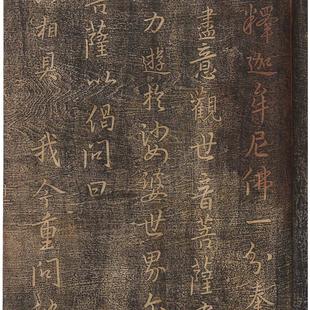 釋迦牟尼佛一分奉
盡意觀世音菩薩
力遊於娑婆世界
菩薩以偈問曰
相具 我今重問